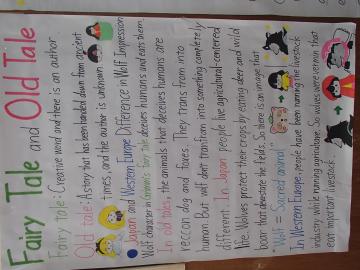 Fairy Tale and Old Tale
Fairy tale: Creative word and there is an author
Old tale: A story that has been handed down from ancient
times, and the author is unknown
Japan and Western Europe Difference in Wolf Impression
Wolf character in Grimm's fairy tale deceives humans and eats them.
In old tales, the animals that deceives humans are
raccoon dog and foxes. They trans from into
human But wolf don't trantition into something completely
different. In Japan, people live agricultural-centered
life. Wolves protect their crops by eating deer and wild
boar that devastate the fields. So there is an image that
"Wolf = Sacred animal"
In Western Europe, people have been running the livestock
industry while running agriculture. So wolves were vermin that
eat important livestock